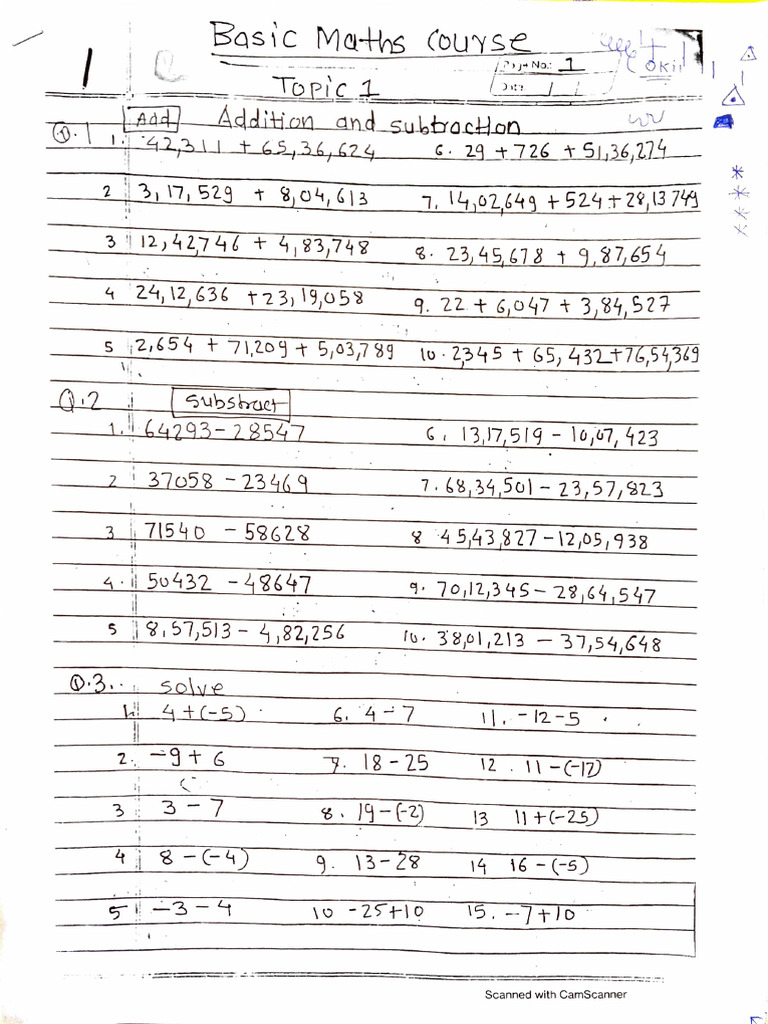 Basic Maths Course
1
Page No.: 1
Date
Topic 1
Add Addition and subtraction
Q.1 1. 42,311 + 65,36,624 6. 29 + 726 + 51,36,274
2 3,17,529 + 8,04,613 7. 14,02,649 + 524 + 28,13749
3 12,42,746 + 4,83,748 8. 23,45,678 + 9,87,654
4 24,12,636 + 23,19,058 9. 22 + 6,047 + 3,84,527
5 2,654 + 71,209 + 5,03,789 10. 2,345 + 65,432 + 76,54,369
Q.2 Substract
1. 64293 - 28547 6. 13,17,519 - 10,07,423
2 37058 - 23469 7. 68,34,501 - 23,57,823
3 71540 - 58628 8 45,43,827 - 12,05,938
4. 50432 - 48647 9. 70,12,345 - 28,64,547
5 8,57,513 - 4,82,256 10. 38,01,213 - 37,54,648
Q.3. solve
1. 4 + (-5) 6. 4 - 7 11. -12 - 5
2. -9 + 6 7. 18 - 25 12. 11 - (-12)
3 3 - 7 8. 19 - (-2) 13 11 + (-25)
4 8 - (-4) 9. 13 - 28 14 16 - (-5)
5 -3 - 4 10 -25 + 10 15. -7 + 10
Scanned with CamScanner